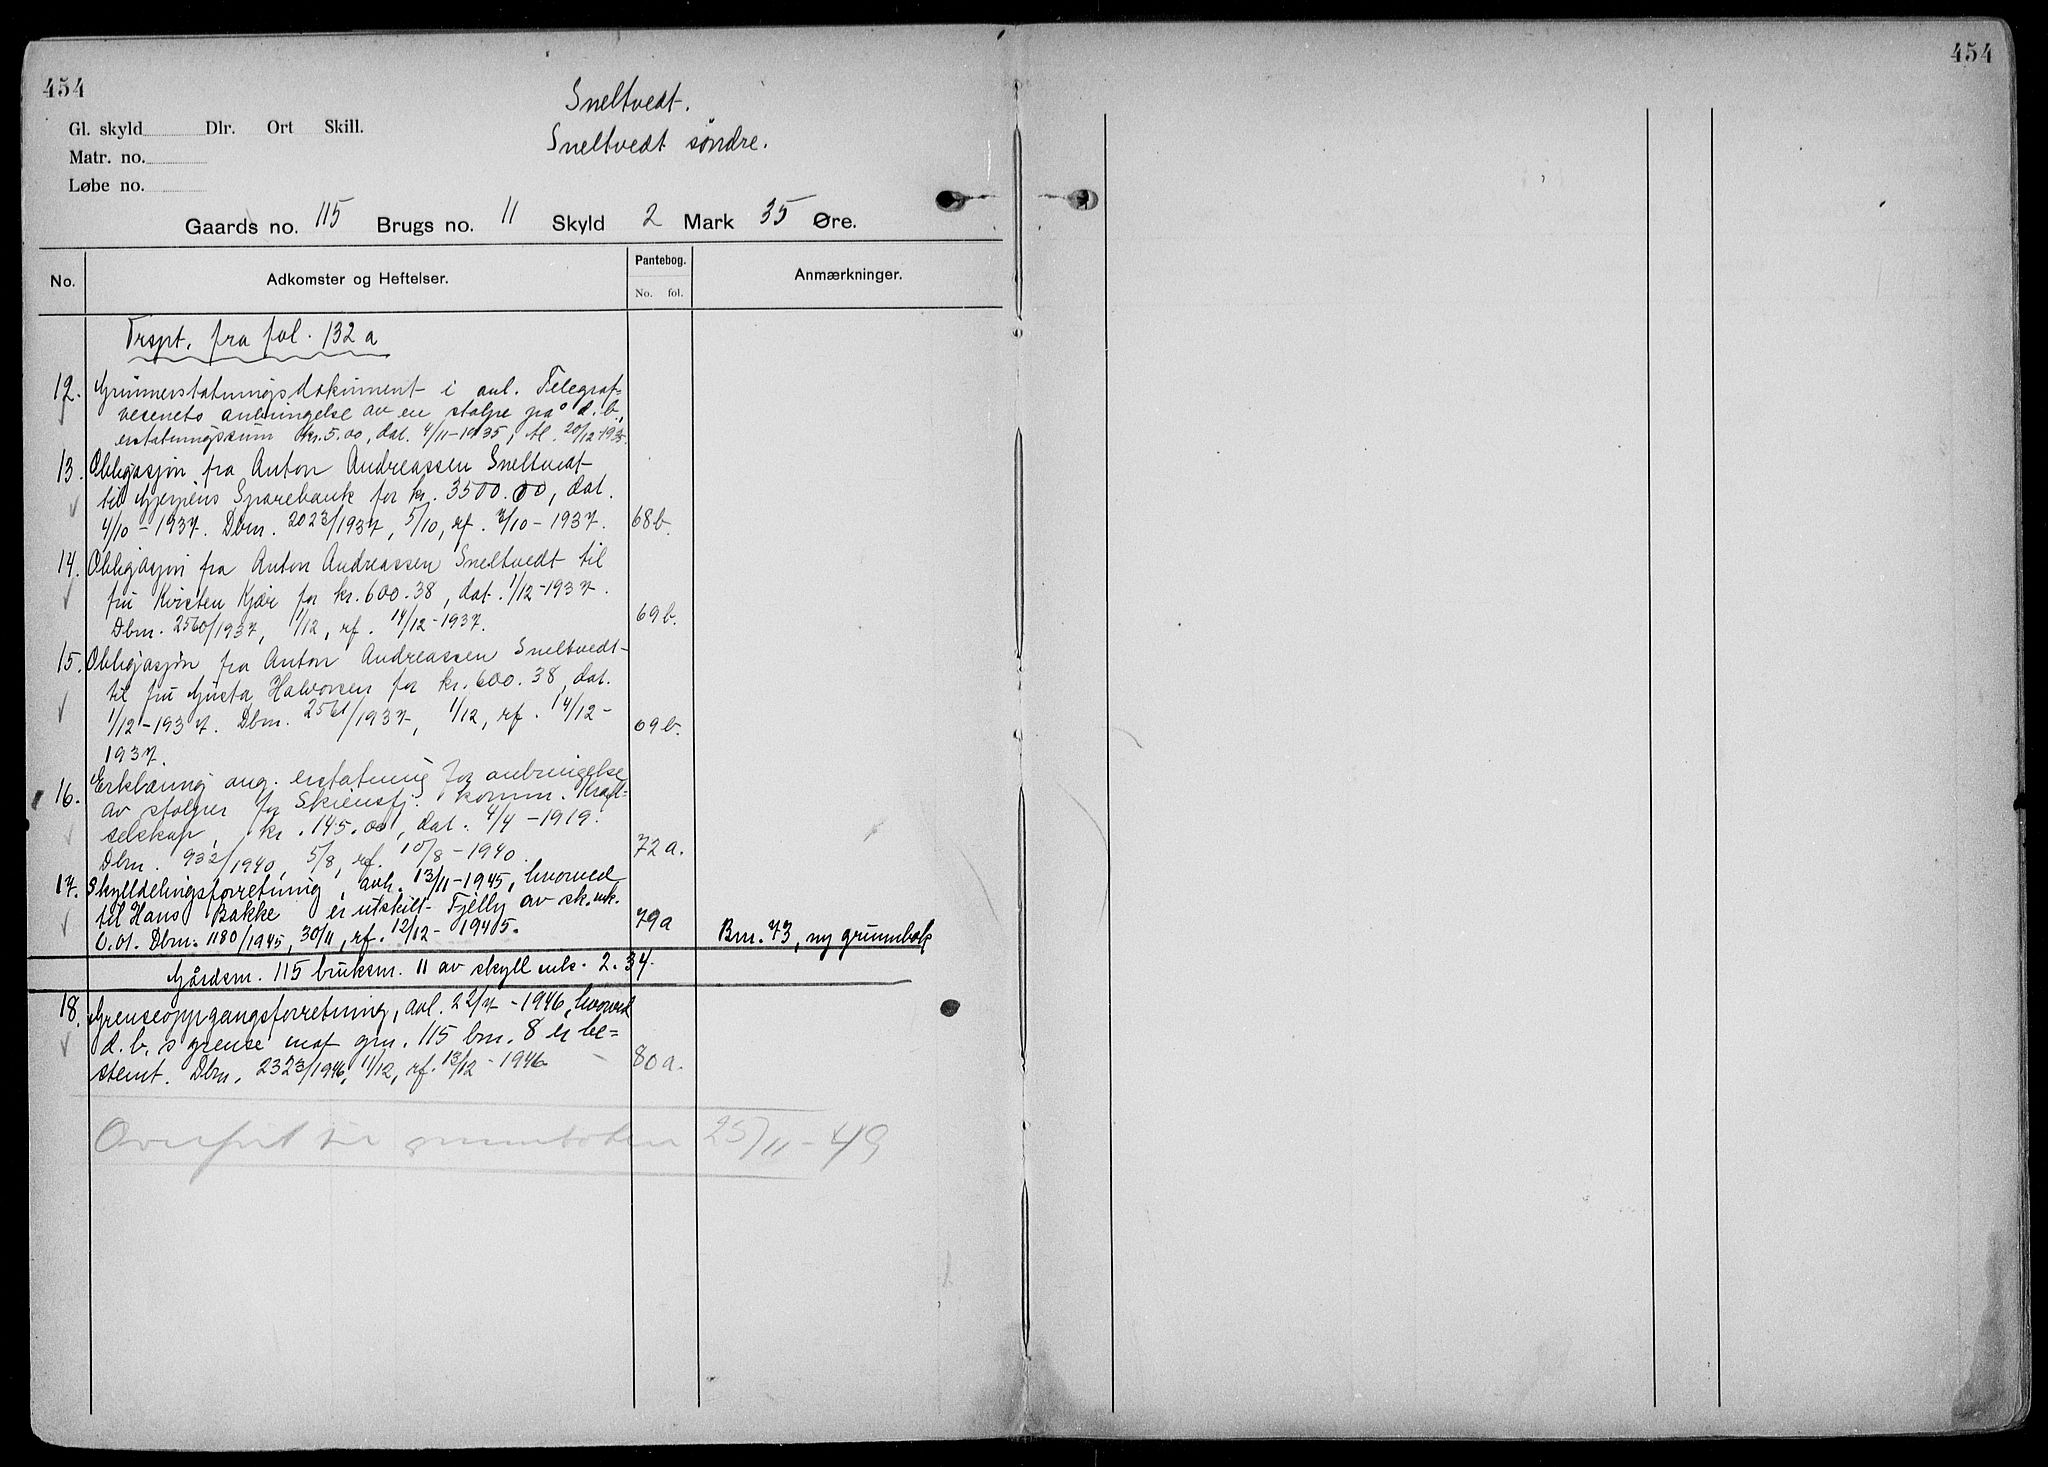 454
454
Sneltvedt.
Gl. skyld Dlr. Ort Skill.
Sneltvedt søndre.
Matr. no.
Løbe no.
Gaards no. 115 Brugs no. 11 Skyld 2 Mark 35 Øre.
No. Adkomster og Heftelser. Pantebog. Anmærkninger.
No. fol.
Trspt. fra fol. 132 a
12. Grunnerstatningsdokument i anl. Telegraf-
vesenets anbringelse av en stolpe på d. b.,
erstatningssum kr. 5.00, dat. 4/11-1935, tl. 20/12-1935.
13. Obligasjon fra Anton Andreassen Sneltvedt
til Gjerpens Sparebank for kr. 3500.00, dat.
4/10-1937. Dbnr. 2023/1937, 5/10, rf. 7/10-1937. 68b.
14. Obligasjon fra Anton Andreassen Sneltvedt til
fru Kirsten Kjær for kr. 600.38, dat. 1/12-1937.
Dbnr. 2560/1937, 1/12, rf. 14/12-1937. 69b.
15. Obligasjon fra Anton Andreassen Sneltvedt
til fru Gusta Halvorsen for kr. 600.38, dat.
1/12-1937. Dbnr. 2561/1937, 1/12, rf. 14/12-
1937. 69b.
16. Erklæring ang. erstatning for anbringelse
av stolper for Skiensfj. komm. Kraft-
selskap, kr. 145.00, dat. 4/4-1919.
Dbnr. 932/1940, 5/8, rf. 10/8-1940. 72a.
17. Skylldelingsforretning, avh. 13/11-1945, hvorved
til Hans Bakke er utskilt Fjelly av sk. mk.
0.01. Dbnr. 1180/1945, 30/11, rf. 12/12-1945. 79a Bnr. 73, ny grunnbok
Gårdsnr. 115 bruksnr. 11 av skyll mk. 2.34.
18. Grenseoppgangsforretning, avl. 22/7-1946, hvorved
d. b. s grense mot gnr. 115 bnr. 8 er be-
stemt. Dbnr. 2323/1946, 11/12, rf. 13/12-1946 80a.
Overført til grunnboken 25/11-49